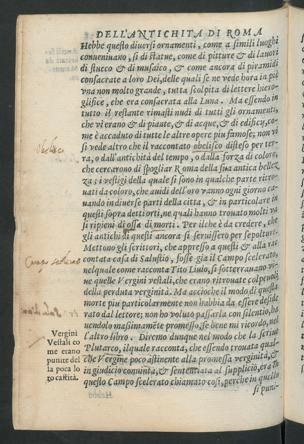 DELL'ANTICHITA DI ROMA
Hebbe questo diuersi ornamenti, come a simili luoghi
conueniuano, si di statue, come di pitture & di lauori
di stucco & di musaico, & come ancora di piramidi
consacrate a loro Dei, delle quali se ne vede hora in piè
vna non molto grande, tutta scolpita di lettere hiero-
glifice, che era consacrata alla Luna. Ma essendo in
tutto il restante rimasti nudi di tutti gli ornamenti,
che vi erano & di piante, & di acque, & di edificij, co-
me è accaduto di tutte le altre opere piu famose; non vi
si vede altro che il raccontato obelisco disteso per ter-
ra, o dall'antichità del tempo, o dalla forza di coloro,
che cercarono di spogliar Roma della sua antica bellez
za: i vestigi della quale si sono in qualche parte ritro-
uati da coloro, che auidi dell'oro vanno ogni giorno ca-
uando in diuerse parti della città, & in particolare in
questi sopra detti orti, ne quali hanno trouato molti va
si ripieni di ossa di morti. Per ilche è da credere, che
gli antichi di questi ancora si seruissero per sepolture.
Mettono gli scrittori, che appresso a questi & alla rac-
contata casa di Salustio, fosse già il Campo scelerato,
nel quale come racconta Tito Liuio, si sotterrauano vi-
ue quelle Vergini vestali, che erano ritrouate colpeuoli
della perduta verginità. Ma accioche il modo di questa
morte piu particolarmente non habbia da essere deside
rato dal lettore; non ho voluto passarla con silentio, ha
uendolo massimamẽte promesso se bene mi ricordo, nel
l'altro libro. Diremo dunque nel modo che la scriue
Plutarco, il quale racconta, che essendo trouata qual-
che Vergine poco astinente alla promessa verginità, &
in giudicio conuinta, & sententiata al supplicio, era in
questo Campo scelerato chiamato così, perche in quello
si puni-
Vergini
Vestali co
me erano
punite del
la poca lo
ro castità.
Obelisco
Campo scelerato